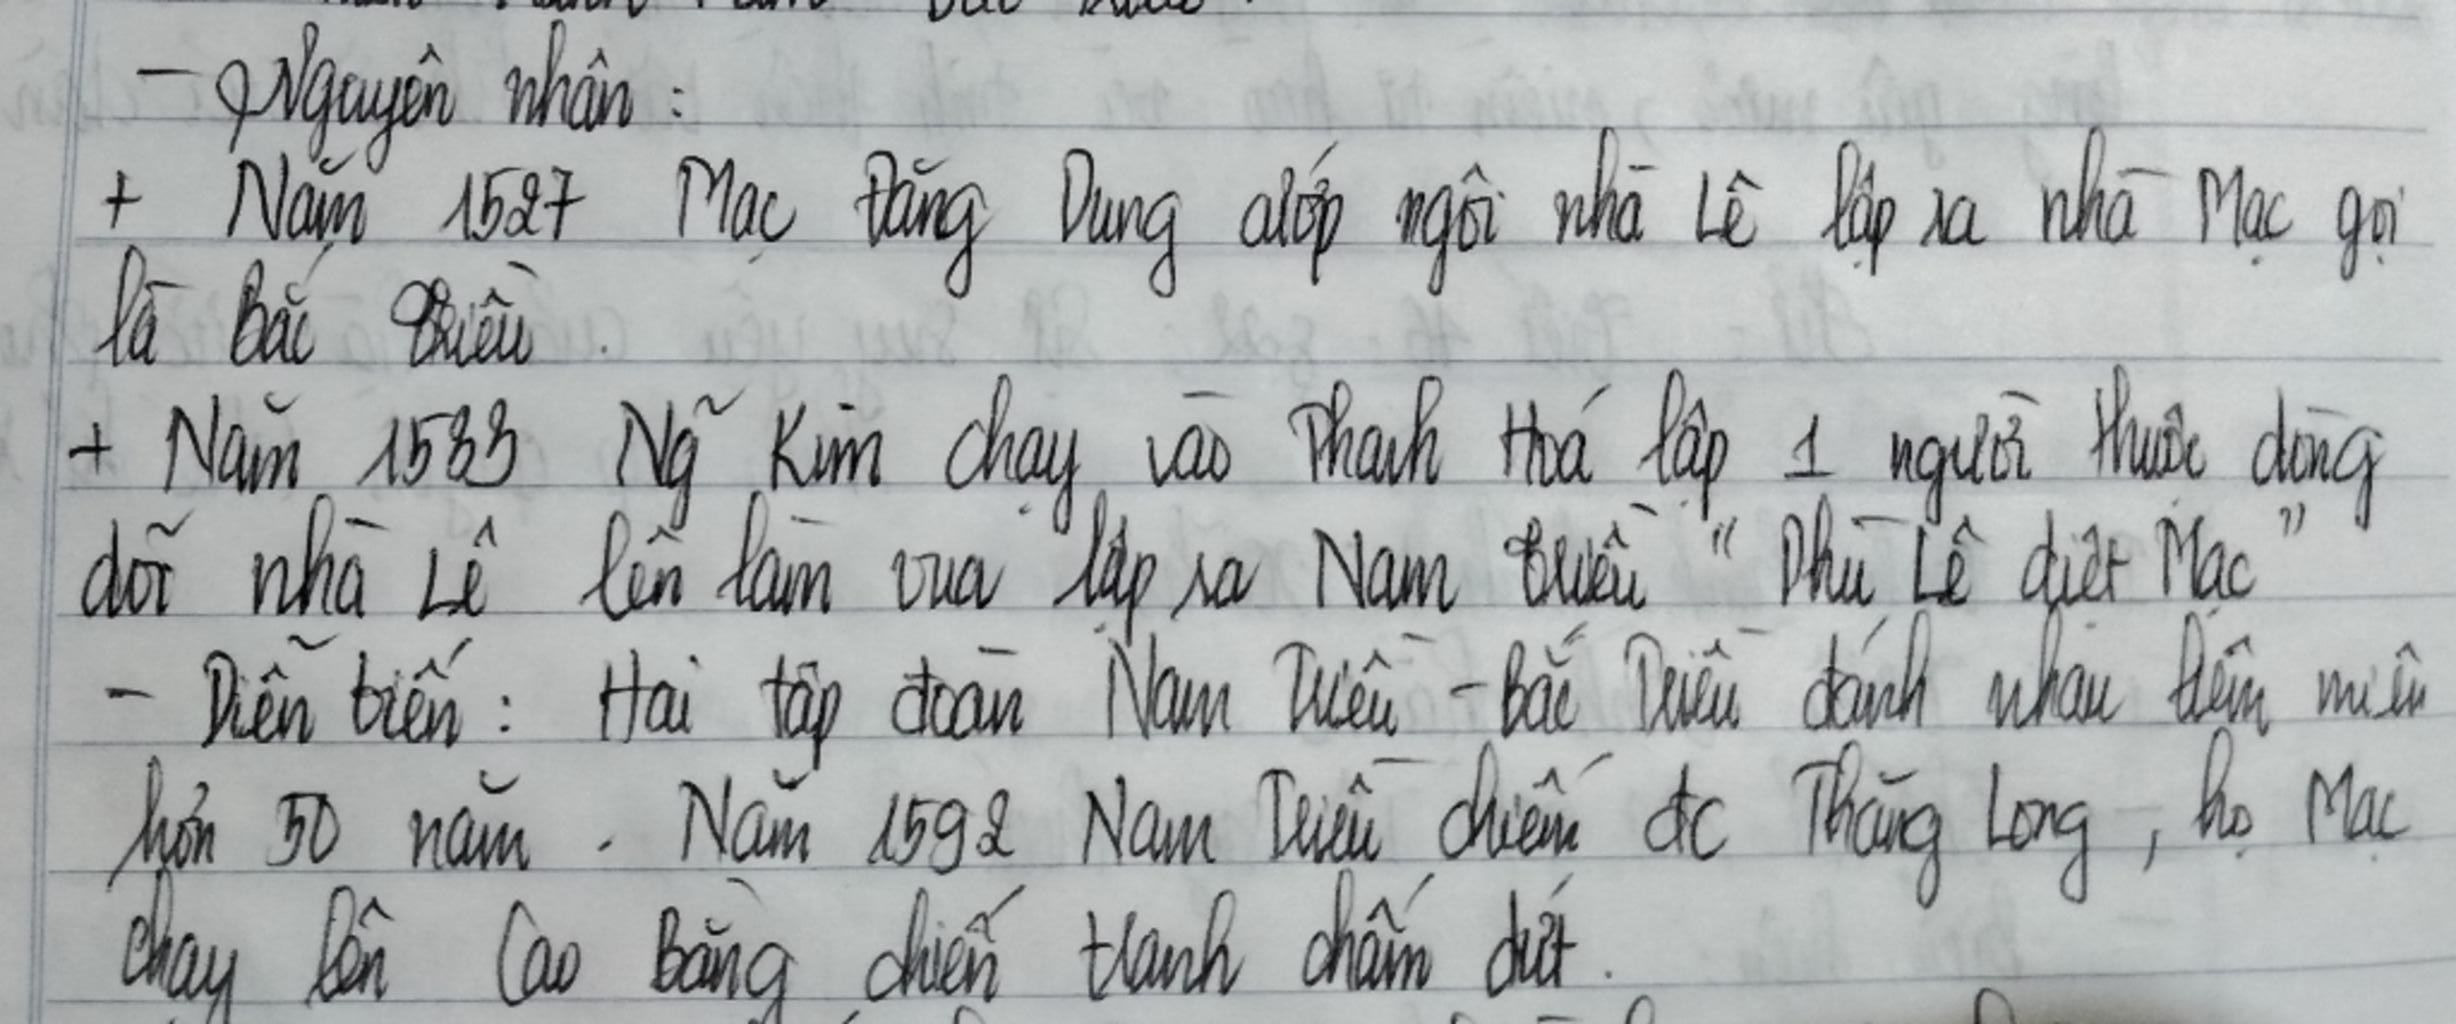 - Nguyên nhân :
+ Năm 1527 Mạc Đăng Dung cướp ngôi nhà Lê lập ra nhà Mạc gọi
là Bắc triều.
+ Năm 1533 Ng~ Kim chạy vào Thanh Hoá lập 1 người thuộc dòng
dõi nhà Lê lên làm vua lập ra Nam triều "Phù Lê diệt Mạc"
- Diễn biến : Hai tập đoàn Nam Triều - Bắc Triều đánh nhau liên miên
hơn 50 năm . Năm 1592 Nam Triều chiếm đc Thăng Long, họ Mạc
chạy lên Cao Bằng chiến tranh chấm dứt.